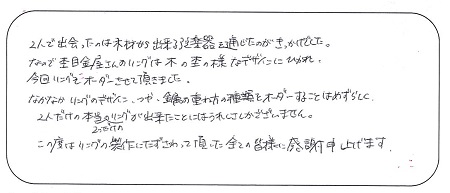 2人で出会ったのは木材から出来る弦楽器を通じたのがきっかけでした。
なので杢目金屋さんのリングは木の杢の様なデザインにひかれ、
今回リングをオーダーさせて頂きました。
なかなかリングのデザイン、つや、金属の重ね方の種類をオーダーすることはめずらしく、
2人だけの本当のリングが出来たことにはうれしさしかございません。
2つだけの
この度はリングの製作にたずさわって頂いた全ての皆様に感謝申し上げます。